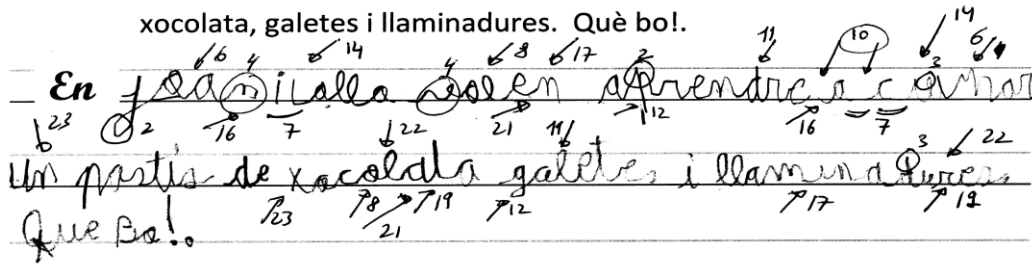 xocolata, galetes i llaminadures. Què bo!.
6 4 14 4 8 17 2 11 10 14 6
En joan i volen aprendre a 3
23 2 16 7 22 21 11 1 12 16 7
un pastis de xocolata galetes i llaminadures 3 22
23 8 21 19 12 17 19
Que Bo!.